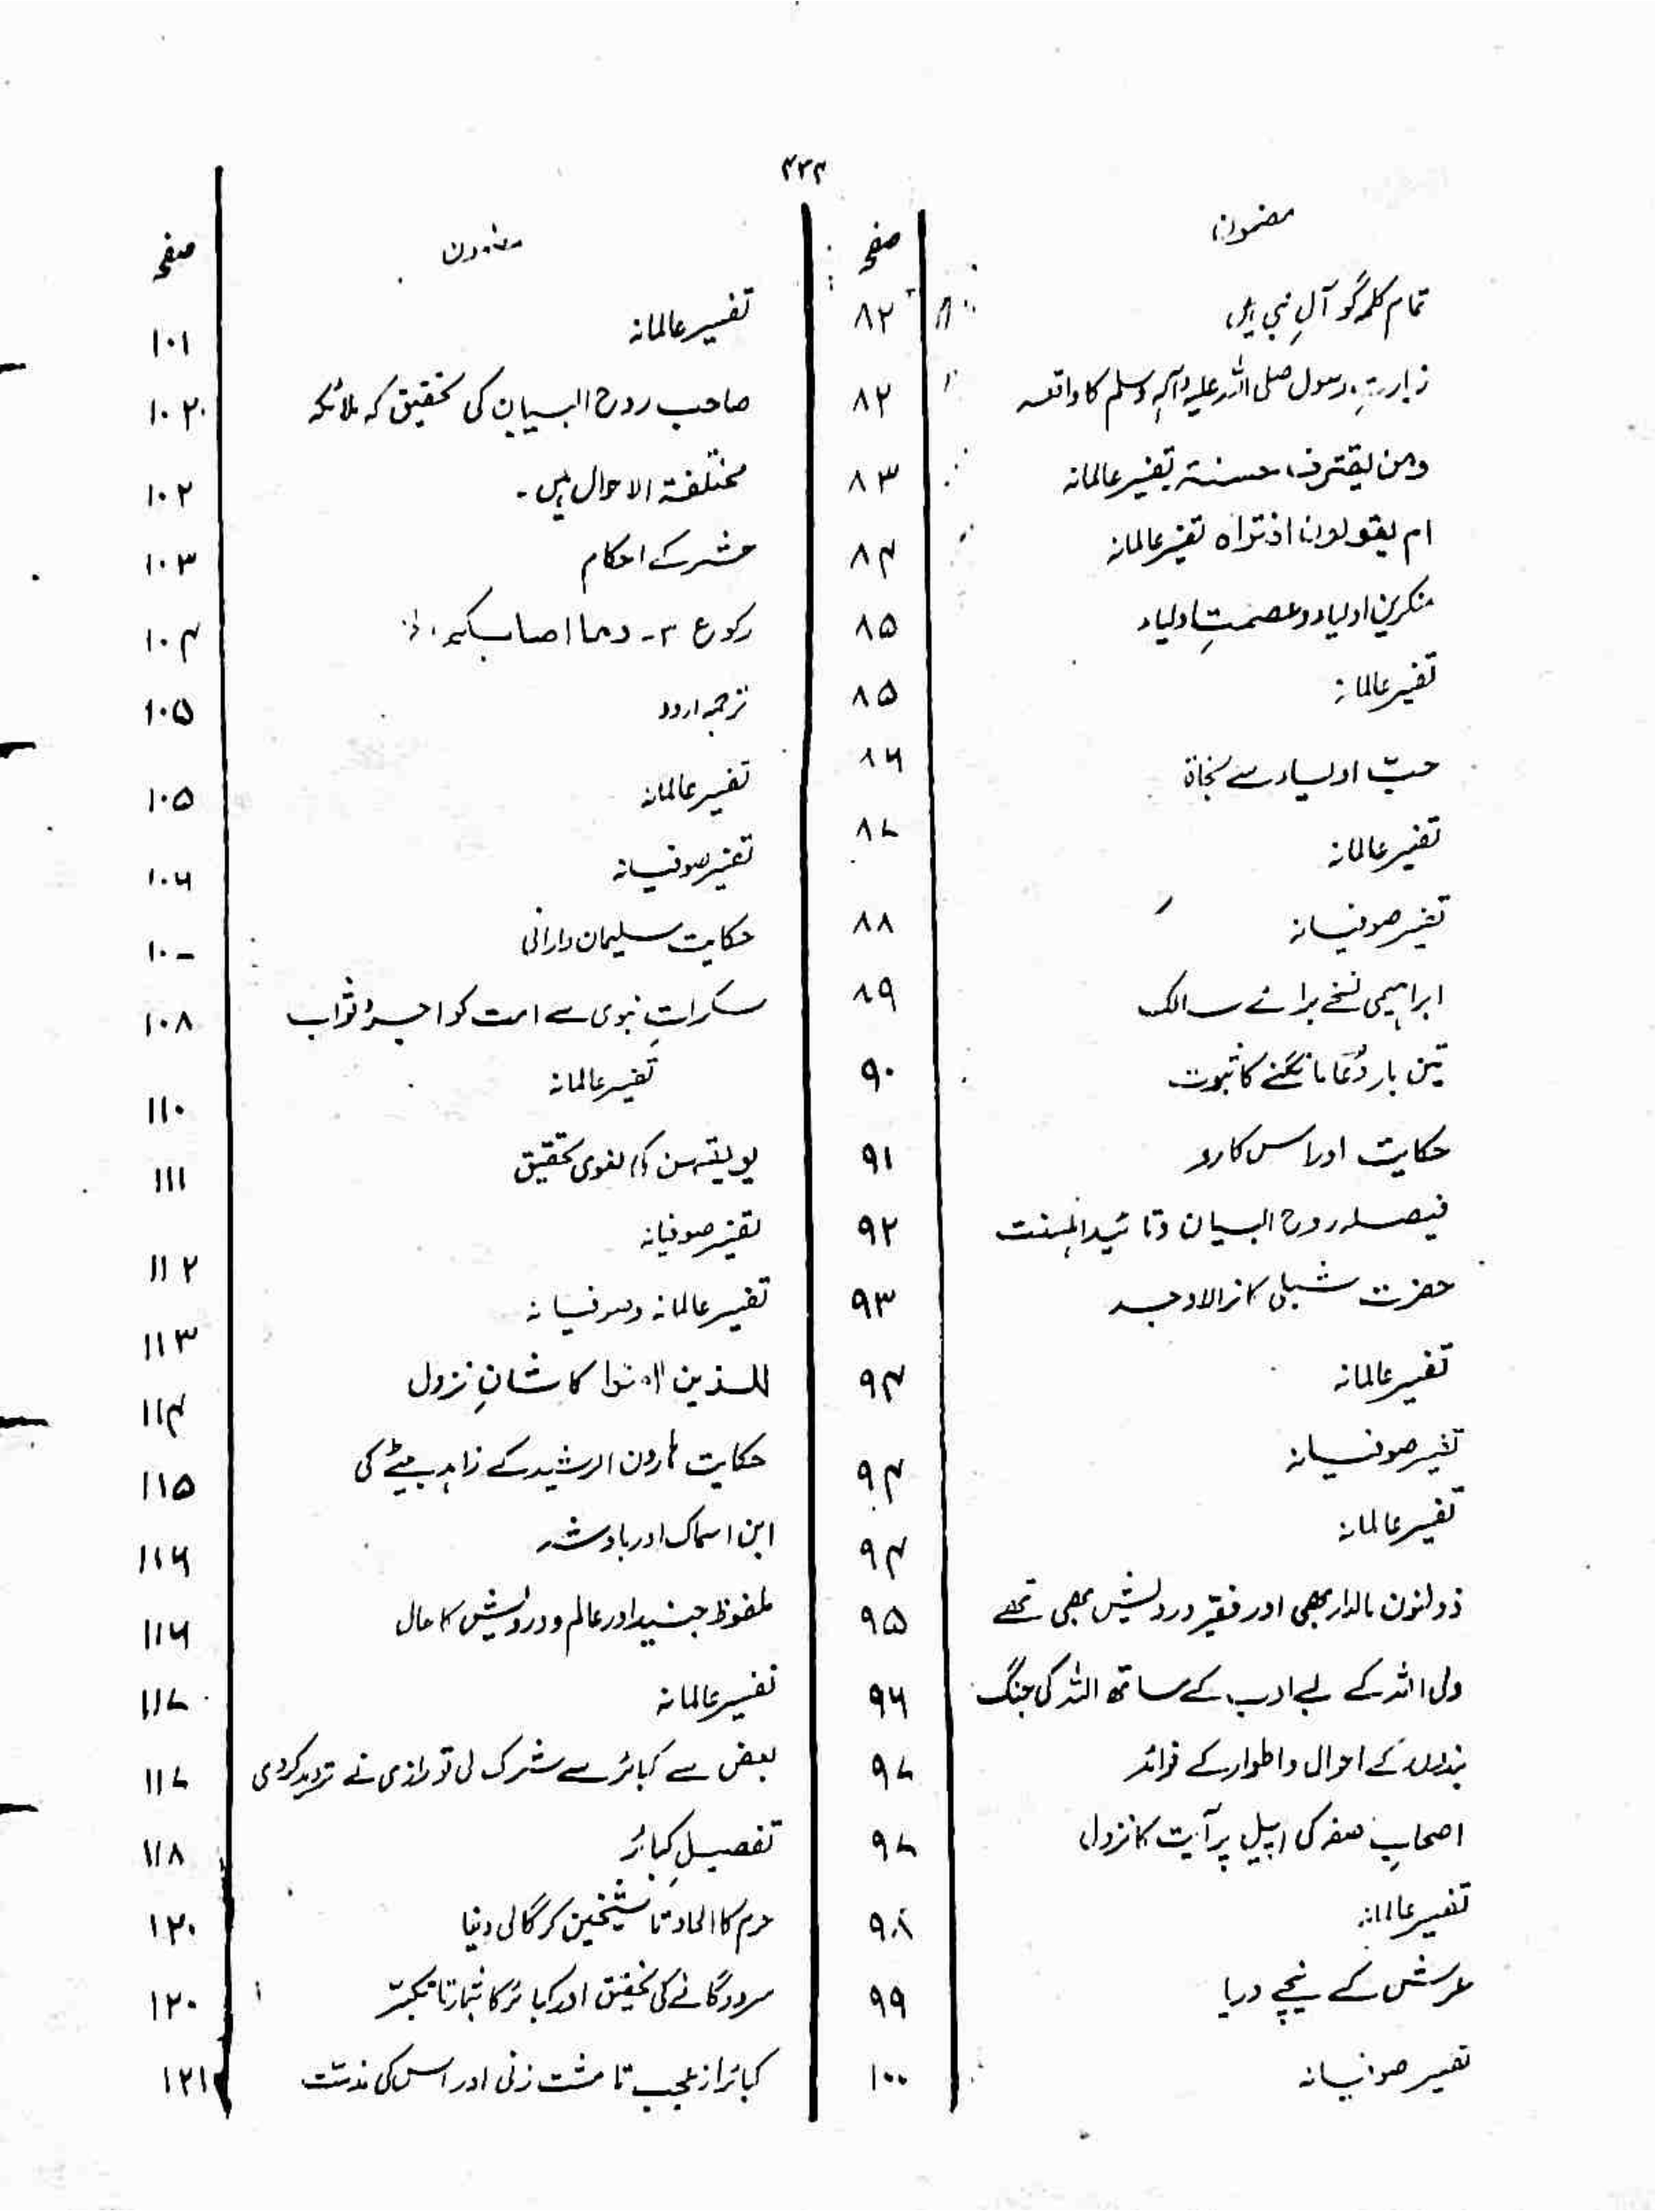 ۴۲۲
مضمون صفحہ
تمام کلمہ گو آلِ نبی ہیں ۸۲
زیارتِ رسول صلی اللہ علیہ وآلہٖ وسلم کا واقعہ ۸۲
ومن یقترف حسنۃ تفسیر عالمانہ ۸۳
ام یقولون افتراہ تفسیر عالمانہ ۸۴
منکرینِ اولیاء وعصمتِ اولیاء ۸۵
تفسیر عالمانہ ۸۵
حبّ اولیاء سے نجاۃ ۸۶
تفسیر عالمانہ ۸۷
تفسیر صوفیانہ ۸۸
ابراہیمی نسخے برائے سالک ۸۹
تین بار دُعا مانگنے کا ثبوت ۹۰
حکایت اور اس کا رد ۹۱
فیصلہ روح البیان وتائید اہلسنت ۹۲
حضرت شبلی کا نرالا وجد ۹۳
تفسیر عالمانہ ۹۴
تفسیر صوفیانہ ۹۴
تفسیر عالمانہ ۹۴
ذوالنون مالدار بھی اور فقیر درویش بھی تھے ۹۵
ولی اللہ کے بے ادب کے ساتھ اللہ کی جنگ ۹۶
بندوں کے احوال واطوار کے فوائد ۹۷
اصحابِ صفہ کی اپیل پر آیت کا نزول ۹۷
تفسیر عالمانہ ۹۸
عرش کے نیچے دریا ۹۹
تفسیر صوفیانہ ۱۰۰
مضمون صفحہ
تفسیر عالمانہ ۱۰۱
صاحب روح البیان کی تحقیق کہ ملائکہ ۱۰۲
مختلفۃ الاحوال ہیں۔ ۱۰۲
حشر کے احکام ۱۰۳
رکوع ۴۔ وما اصابکم ۱۰۴
ترجمہ اردو ۱۰۵
تفسیر عالمانہ ۱۰۵
تفسیر صوفیانہ ۱۰۶
حکایت سلیمان دارانی ۱۰
سکراتِ نبوی سے امت کو اجر وثواب ۱۰۸
تفسیر عالمانہ ۱۱۰
یوبقہن کی لغوی تحقیق ۱۱۱
تفسیر صوفیانہ ۱۱۲
تفسیر عالمانہ وصوفیانہ ۱۱۳
للذین اٰمنوا کا شانِ نزول ۱۱۴
حکایت ہارون الرشید کے زاہد بیٹے کی ۱۱۵
ابن اسماک اور بادشہ ۱۱۶
ملفوظ جنید اور عالم و درویش کا حال ۱۱۶
تفسیر عالمانہ ۱۱۷
بعض سے کبائر سے شرک لی تو رازی نے تردید کردی ۱۱۷
تفصیلِ کبائر ۱۱۸
حرم کا الحاد تا شیخین کر گالی دینا ۱۲۰
سرود گانے کی تحقیق اور کبائر کا شمار تا تکبّر ۱۲۰
کبائر از عجب تا مشت زنی اور اس کی مذمّت ۱۲۱